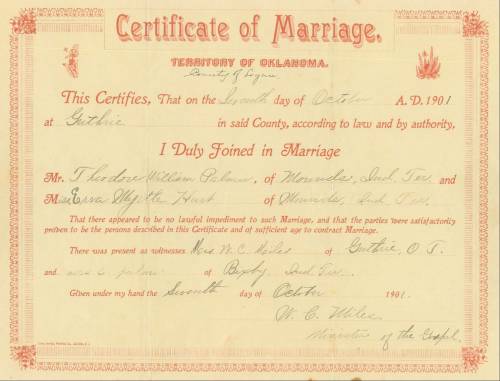 Certificate of Marriage.
TERRITORY OF OKLAHOMA.
County of Logan
This Certifies, That on the Seventh day of October A.D. 1901
at Guthrie in said County, according to law and by authority,
I Duly Joined in Marriage
Mr. Theodore William Palmer, of Mounds, Ind. Ter. and
Miss Erva Myrtle Hart of Mounds, Ind. Ter.
That there appeared to be no lawful impediment to such Marriage, and that the parties were satisfactorily
proven to be the persons described in this Certificate and of sufficient age to contract Marriage.
There was present as witnesses Mrs. W. C. Miles of Guthrie, O T.
and Palmer of Bixby, Ind. Ter.
Given under my hand the Seventh day of October 1901.
W. C. Miles
Minister of the Gospel.